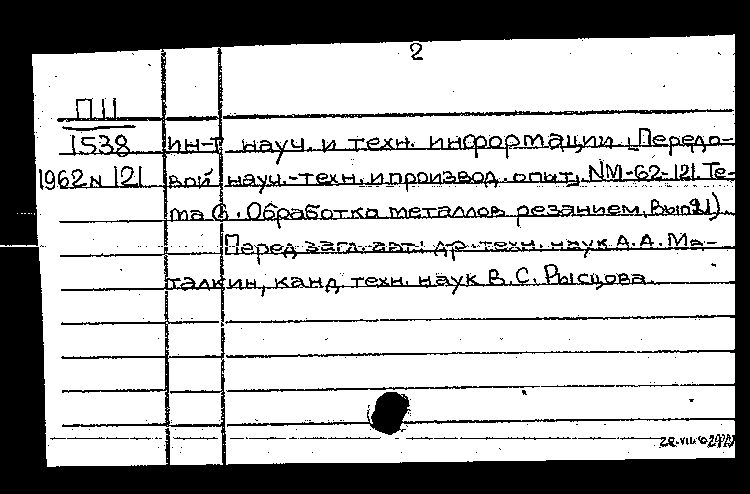 2
П11
1538 ин-т науч. и техн. информации. [Передо-
1962 N 121 вой науч.-техн. и производ. опыт, NМ-62-121. Те-
ма 6. Обработка металлов резанием, Вып. 21).
Перед загл. авт.: др. техн. наук А. А. Ма-
талкин, канд. техн. наук В. С. Рысцова